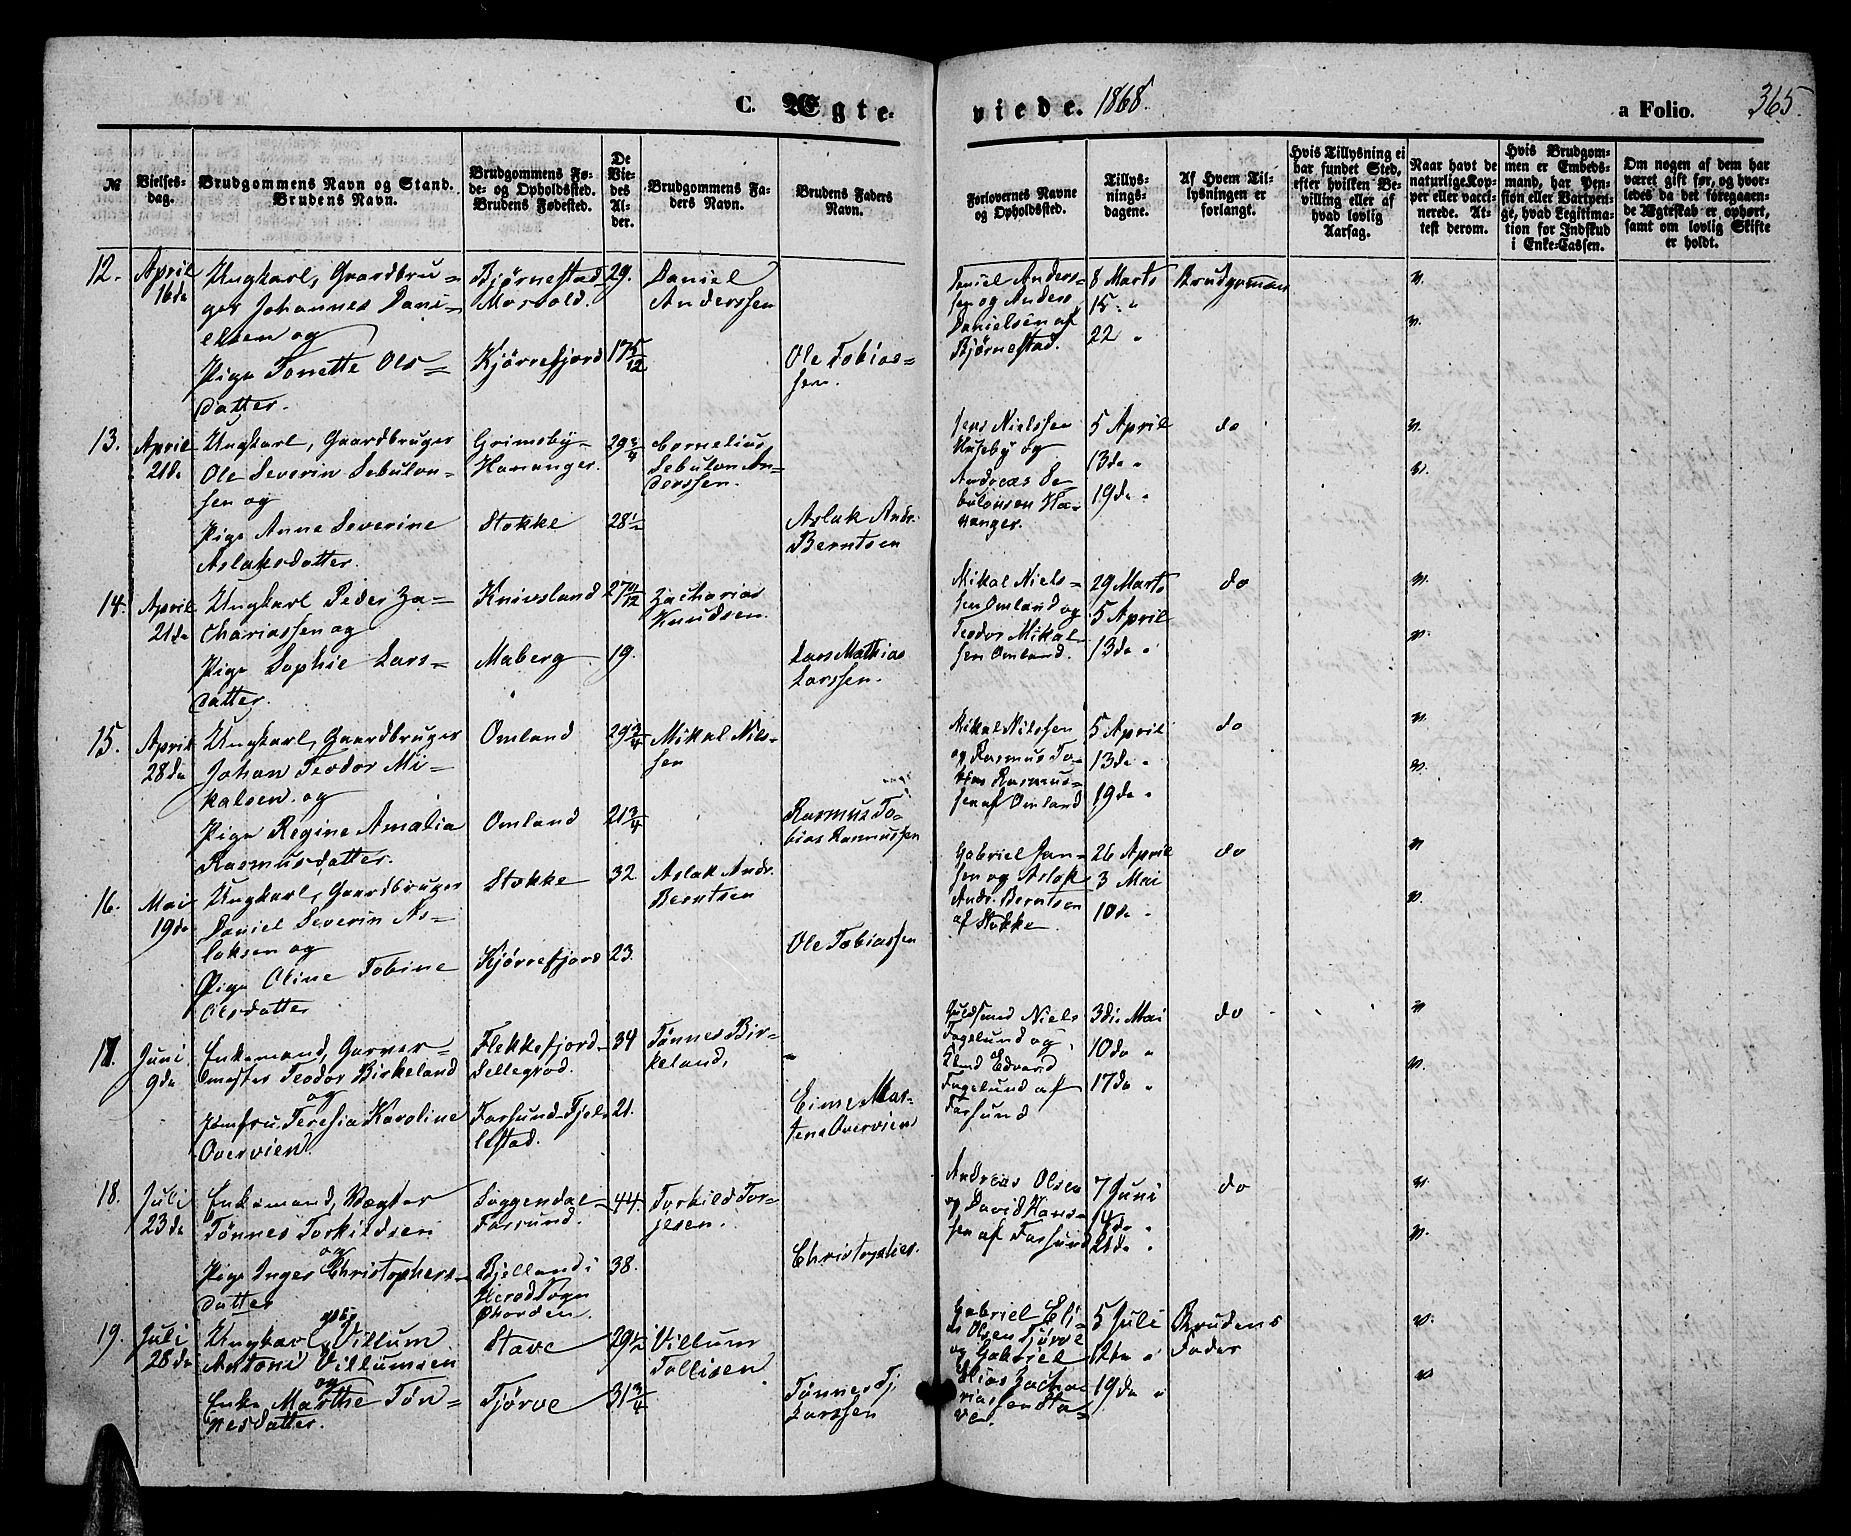 C. Ægte-
viede. 1868.
a Folio.
365.
№
Vielses-
dag.
Brudgommens Navn og Stand.
Brudens Navn.
Brudgommens Fø-
de- og Opholdssted.
Brudens Fødested.
De
Vie-
des
Al-
der.
Brudgommens Fa-
ders Navn.
Brudens Faders
Navn.
Forlovernes Navne
og Opholdssted.
Tillys-
nings-
dagene.
Af Hvem Til-
lysningen er
forlangt.
Hvis Tillysning ei
har fundet Sted,
efter hvilken Be-
villing eller af
hvad lovlig
Aarsag.
Naar havt de
naturlige Kop-
per eller vacci-
nerede. At-
test derom.
Hvis Brudgom-
men er Embeds-
mand, har Pen-
sion eller Vartpen-
ge, hvad Legitima-
tion for Indskud
i Enke-Cassen.
Om nogen af dem har
været gift før, og hvor-
ledes da det foregaaen-
de Ægteskab er ophørt,
samt om lovlig Skifte
er holdt.
12.
April
16de
Ungkarl, Gaardbru-
ger Johannes Dani-
elsen og
Pige Tonette Ols-
datter.
Bjørnestad
Kjørrefjord
29.
17 5/12
Daniel
Anderssen
Ole Tobias-
sen.
Daniel Anders-
sen og Anders
Danielsen af
Bjørnestad.
8 Marts
15 "
22 "
Brudgommen
v.
v.
13.
April
21de
Ungkarl, Gaardbruger
Ole Severin Sebulon-
sen og
Pige Anne Severine
Aslaksdatter.
Grimsby-
Hananger.
Stokke
29 3/4
28 1/2
Cornelius
Sebulon An-
derssen.
Aslak Andr.
Berntsen
Jens Nielssen
Huseby og
Andreas Se-
bulonsen Ha-
nanger.
5 April
13de "
19de "
do
v.
v.
14.
April
21de
Ungkarl Peder Za-
chariassen og
Pige Sophie Lars-
datter.
Knivsland
Maberg
19.
Zacharias
Knudsen.
Lars Mathias
Larssen.
Mikal Niels-
sen Omland og
Teodor Mikal-
sen Omland.
29 Marts
5 April
13de "
do
v.
v.
15.
April
28de
Ungkarl, Gaardbruger
Johan Teodor Mi-
kalsen og
Pige Regine Amalia
Rasmusdatter.
Omland
Omland
29 3/4
21 3/4
Mikal Nils-
sen
Rasmus To-
bias Rasmussen
Mikal Nilssen
og Rasmus To-
bias Rasmus-
sen af Omland
5 April
13de "
19de "
do
v.
v.
16.
Mai
19de
Ungkarl, Gaardbruger
Daniel Severin As-
laksen og
Pige Oline Tobine
Olsdatter
Stokke
Kjørrefjord
32
23.
Aslak Andr.
Berntsen
Ole Tobiassen
Gabriel Jan-
sen og Aslak
Andr. Berntsen
af Stokke
26 April
3 Mai
10de "
do
v
v.
17.
Juni
9de
Enkemand, Garver-
mester Teodor Birkeland
og
Jomfru Teresia Karoline
Overvien.
Flekkefjord-
Sellegrod.
Farsund-Tjel-
lestad.
34
21.
Tønnes Bir-
keland.
Niels
Fagelund og
Edvard
Fagelund af
Farsund
3die Mai
10de "
17de "
do
v
v.
18.
Juli
23de
Enkemand, Vægter
Tønnes Torkildsen
og
Pige Inger Christophers-
datter
Soggendal-
Farsund.
Bjelland i
44.
38.
Torkild Tor-
jesen.
Andreas Olsen
og David Hans-
sen af Farsund
7 Juni
14de
21de "
do
v.
v.
19.
Juli
28de
Ungkarl Villum
Antoni Villumsen
og
Enke Marthe Tøn-
nesdatter.
Stave
Tjørve
29 1/2
31 3/4
Villum
Tollisen
Tønnes Tj
Larssen
Gabriel Eli-
as Olsen Tjørve
og Gabriel
Elias Zacha-
riassen Sta-
ve.
5 Juli
12te "
19de "
Brudens
Fader
v.
v.